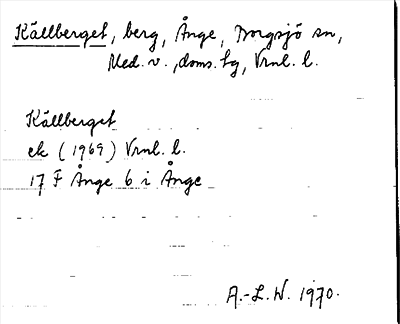 Källberget, berg, Ånge, Borgsjö sn,
Med. v., doms. tg, Vrnl. l.
Källberget
ek (1969) Vrnl. l.
17 F Ånge 6 i Ånge
A.-L. W. 1970.